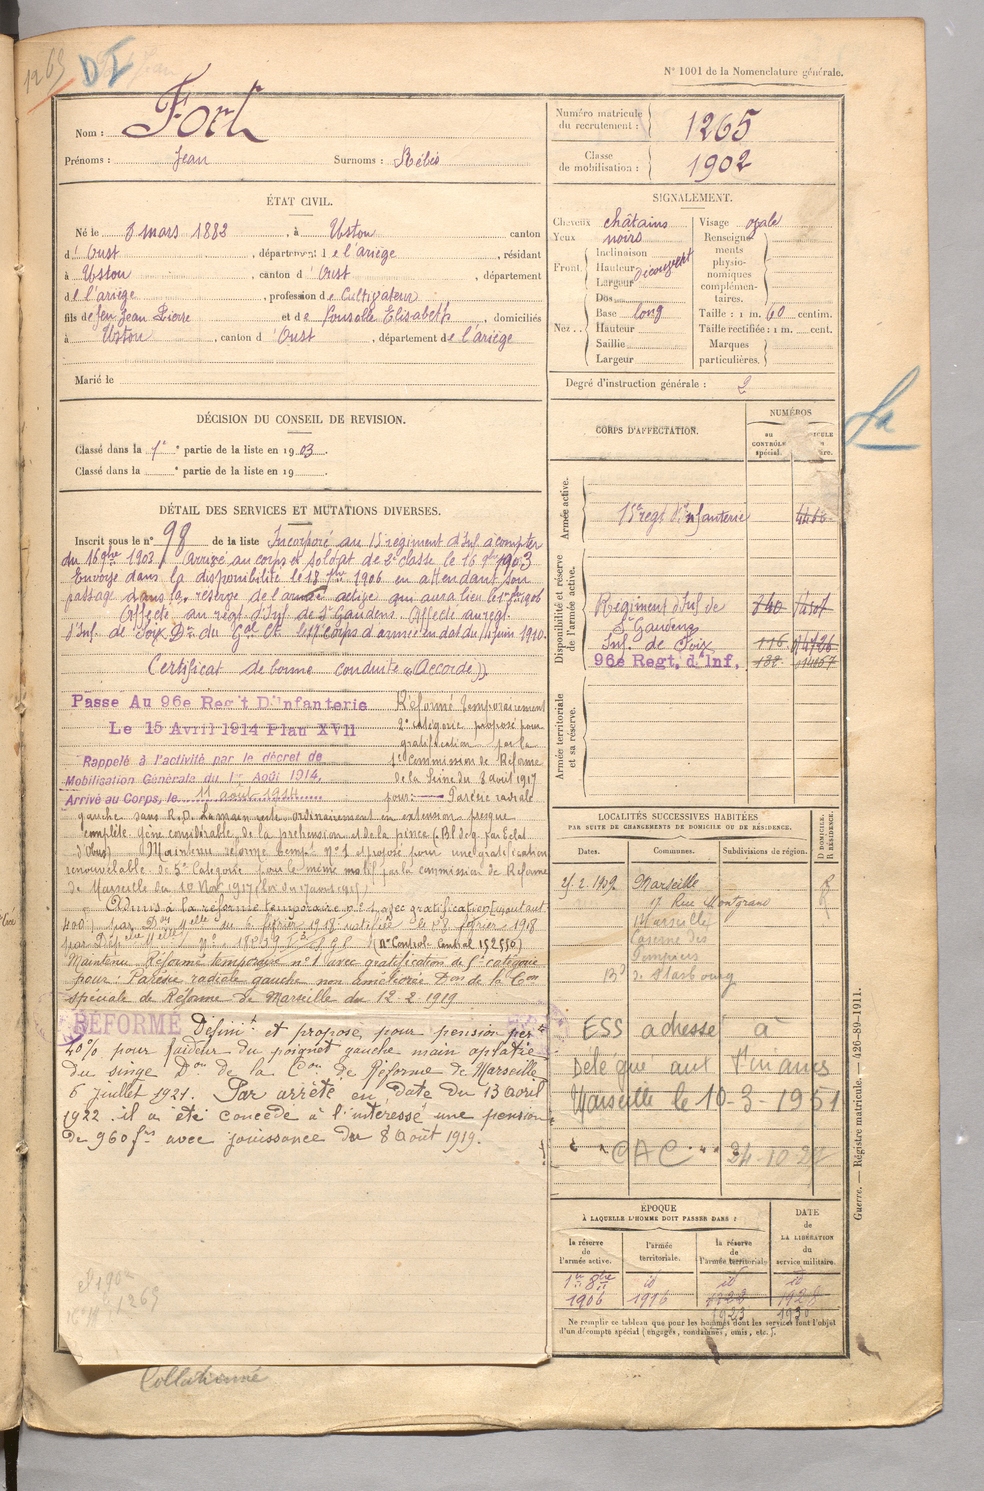 1265
DI
N° 1001 de la Nomenclature générale.
Nom : Fort
Prénoms : Jean Surnoms : Rébis
Numéro matricule du recrutement : 1265
Classe de mobilisation : 1902
ÉTAT CIVIL.
Né le 8 mars 1882, à Ustou canton
d' Oust, département de l'ariège, résidant
à Ustou, canton d' Oust, département
de l'ariège, profession de Cultivateur
fils de feu Jean Pierre et de Elisabeth, domiciliés
à Ustou, canton d' Oust, département de l'ariège
Marié le
SIGNALEMENT.
Cheveux châtains
Yeux noirs
Front. Inclinaison
Hauteur Découvert
Largeur
Nez. Dos
Base long
Hauteur
Saillie
Largeur
Visage ovale
Renseignements physionomiques complémentaires.
Taille : 1 m. 60 centim.
Taille rectifiée : 1 m. cent.
Marques particulières.
Degré d'instruction générale : 2
DÉCISION DU CONSEIL DE REVISION.
Classé dans la 1e partie de la liste en 1903.
Classé dans la ° partie de la liste en 19
DÉTAIL DES SERVICES ET MUTATIONS DIVERSES.
Inscrit sous le n° 98 de la liste Incorporé au 15 régiment d'Inf à compter
du 16 9bre 1903 Arrivé au corps et soldat de 2e classe le 16 9bre 1903
Envoyé dans la disponibilité le 18 7bre 1906 en attendant son
passage dans la réserve de l'armée active qui aura lieu le 1er 8bre 1906
Affecté au régt d'Inf de St Gaudens. Affecté au régt
d'Inf. de Foix Don du Gal Ct le 17e corps d'armée en dat du juin 1910
(Certificat de bonne conduite "Accordé")
Passe Au 96e Reg't D'Infanterie
Le 15 Avril 1914 Plan XVII
Rappelé à l'activité par le décret de
Mobilisation Générale du 1er Août 1914.
Arrivé au Corps, le 11 août 1914
Réformé temporairement
2e catégorie proposé pour
gratification par la
1e Commission de Réforme
de la Seine du 8 avril 1917
pour : Parésie radiale
gauche sans R.D. La main reste ordinairement en extension presque
complète, gêne considérable de la préhension et de la pince (Bl deg. par Eclat
d'obus) Maintenu réformé Tempre N° 1 et proposé pour une gratification
renouvelable de 5e Catégorie pour le même motif par la commission de Réforme
de Marseille du 10 Nov. 1917
Admis à la réforme temporaire n° 1 avec gratification
du 6 février 1918 notifiée le 8 février 1918
(n° Controle Central 152550)
Maintenu Réformé temporaire n° 1 avec gratification de 5e catégorie
pour : Parésie radiale gauche non améliorée Don de la Con
spéciale de Réforme de Marseille du 12-2-1919
RÉFORMÉ Définit et proposé pour pension per
40% pour raideur du poignet gauche main aplatie
du singe Don de la Con de Réforme de Marseille
6 juillet 1921. Par arrêté en date du 13 avril
1922 il a été concédé à l'intéressé une pension
de 960 frs avec jouissance du 8 Août 1919.
CORPS D'AFFECTATION.
NUMÉROS
au CONTRÔLE spécial.
Armée active.
15e régt d'infanterie
Disponibilité et réserve de l'armée active.
Régiment d'Inf de
St Gaudens
Inf. de Foix 116
96e Regt. d'Inf.
Armée territoriale et sa réserve.
LOCALITÉS SUCCESSIVES HABITÉES
PAR SUITE DE CHANGEMENTS DE DOMICILE OU DE RÉSIDENCE.
Dates. Communes. Subdivisions de région. D. DOMICILE. R. RÉSIDENCE.
25.2.1909 Marseille R
17 Rue Montgrand
Marseille
Caserne des
Pompiers
Bd de Strasbourg
ESS adressé à
Délégué aux Finances
Marseille le 10-3-1951
" " CAC " "
ÉPOQUE
À LAQUELLE L'HOMME DOIT PASSER DANS :
la réserve de l'armée active. l'armée territoriale. la réserve de l'armée territoriale
DATE de LA LIBÉRATION du service militaire.
1er 8bre 1906
id 1916
id 1922 1923
id 1928 1930
Ne remplir ce tableau que pour les hommes dont les services font l'objet
d'un décompte spécial (engagés, condamnés, omis, etc.).
Guerre. — Régistre matricule. — 426-89-1911.
1269
Collationné